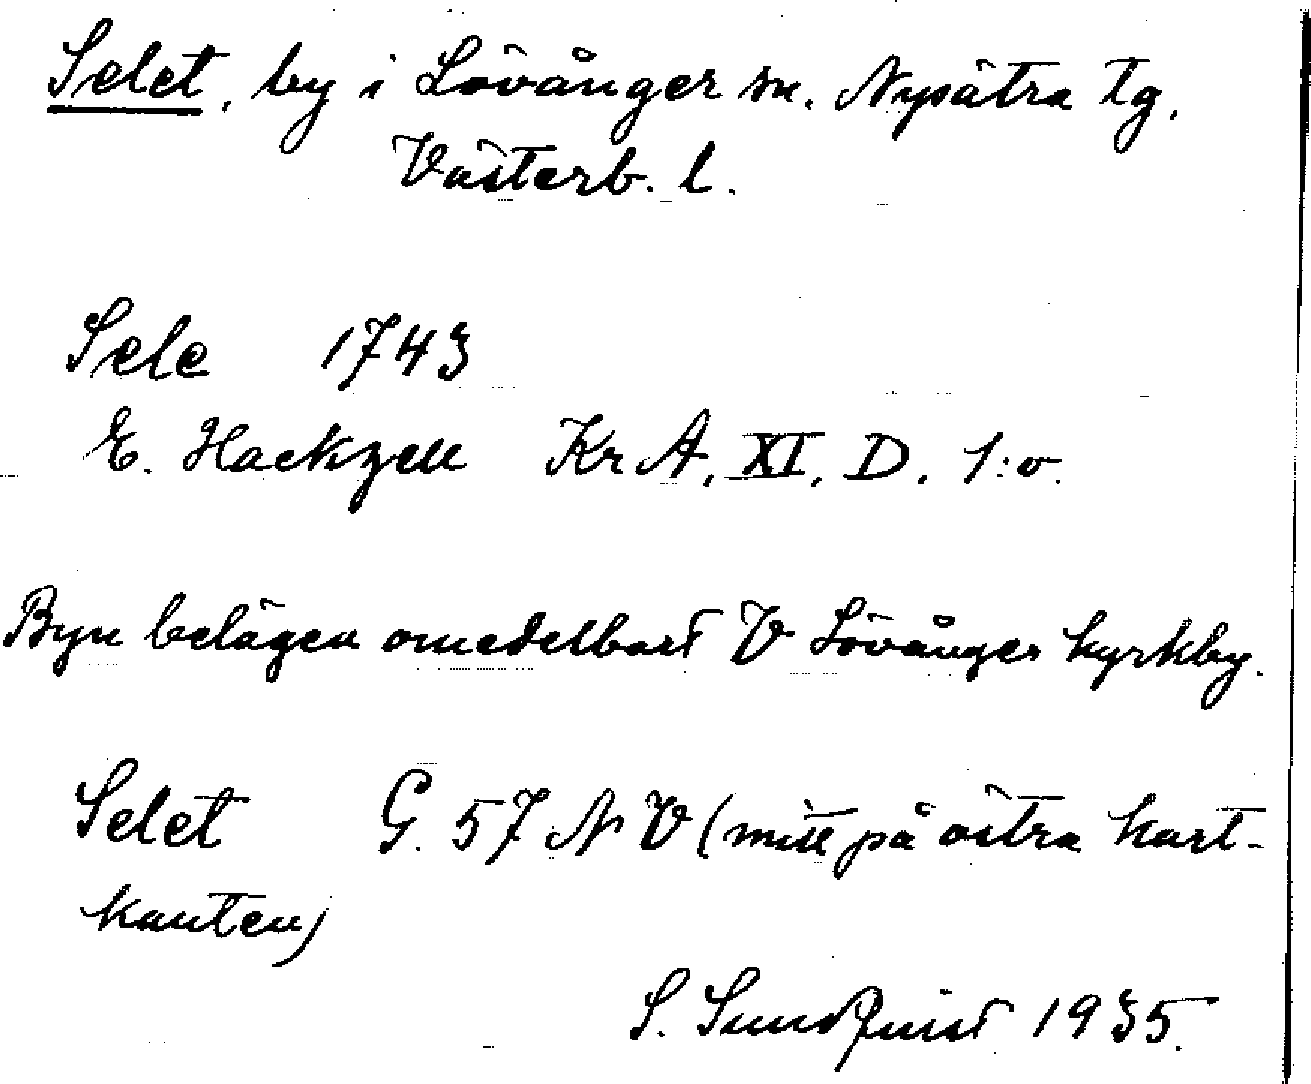 Selet, by i Lövånger sn. Nysätra tg.
Västerb. l.
Sele 1743
E. Hackzell Kr A. XI. D. 1:o.
Byn belägen omedelbart V Lövånger kyrkby.
Selet G. 57 N V (mitt på östra kart-
kanten)
S. Sundquist 1935.